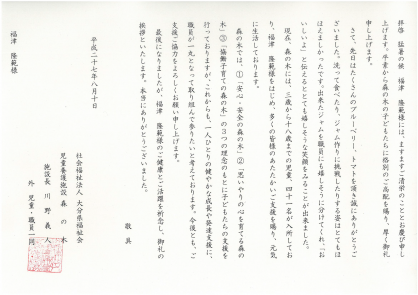 拝啓 猛暑の候 福津 隆範様には、ますますご清祥のこととお慶び申し
上げます。平素から森の木の子どもたちに格別のご高配を賜り、厚く御礼
申し上げます。
さて、先日はたくさんのブルーベリー、トマトを頂き誠にありがとうご
ざいました。洗って食べたり、ジャム作りに挑戦したりする姿はとてもほ
ほえましかったです。出来たジャムを職員にも嬉しそうに分けてくれ、「お
いしいよ」と伝えるととても嬉しそうな笑顔をみることが出来ました。
現在、森の木には、三歳から十八歳までの児童、四十一名が入所してお
り、福津 隆範様をはじめ、多くの皆様のあたたかいご支援を賜り、元気
に生活しております。
森の木では、①「安心・安全の森の木」②「思いやりの心を育てる森の
木」③「協働子育ての森の木」の3つの理念のもとに子どもたちの支援を
行っておりますが、これからも、一人ひとりの健やかな成長や発達支援に、
職員が一丸となって取り組んで参りたいと考えております。今後とも、ご
支援ご協力をよろしくお願い申し上げます。
最後になりましたが、福津 隆範様のご健康とご活躍を祈念し、御礼の
挨拶といたします。本当にありがとうございました。
敬具
平成二十七年八月十日
社会福祉法人 大分県福祉会
児童養護施設 森の木
施設長 川野 義人
外 児童・職員一同
福津 隆範様